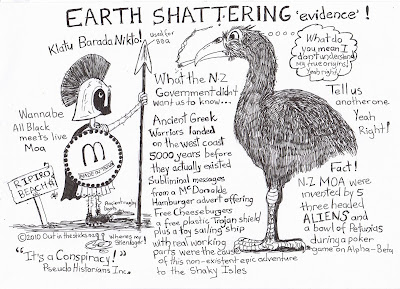 EARTH SHATTERING 'evidence' !
Klatu Barada Nikto!
Used for BBQ
What do
you mean I
don't understand
my true origins!
Yeah right.
What the N.Z
Government didn't
want us to know...
Ancient Greek
Warriors landed
on the west coast
5000 years before
they actually existed
Subliminal messages
from a McDonalds
Hamburger advert offering
Free Cheeseburgers
a free plastic Trojan shield
plus a toy sailing ship
with real working
parts were the cause
of this non-existent epic adventure
to the Shaky Isles
Tell us
another one
Yeah
Right!
Wannabe
All Black
meets live
Moa
m
RIPIRO
BEACH
Ancient rugby
boots
Fact!
N.Z MOA were
invented by 5
three headed
ALIENS and
a bowl of Petunias
during a poker
game on Alpha-Beta
©2010 Out in the sticks mag
Where's my
Stilenlogic!
"It's a Conspiracy!"
Pseudo Historians Inc.